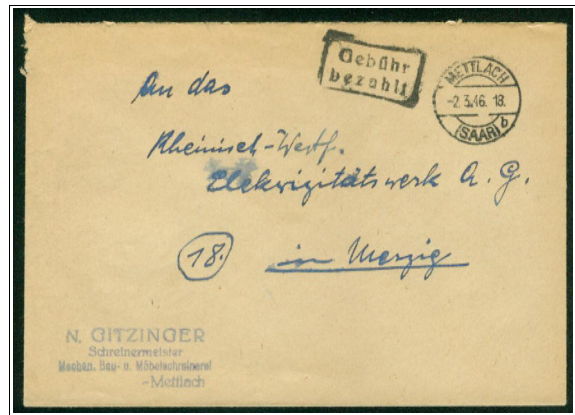 Gebühr
bezahlt
METTLACH
-2.3.46. 18.
(SAAR) b
An das
Rheinisch-Westf.
Elekrizitätswerk A. G.
18.
in Merzig
N. GITZINGER
Schreinermeister
Mechan. Bau- u. Möbelschreinerei
-Mettlach